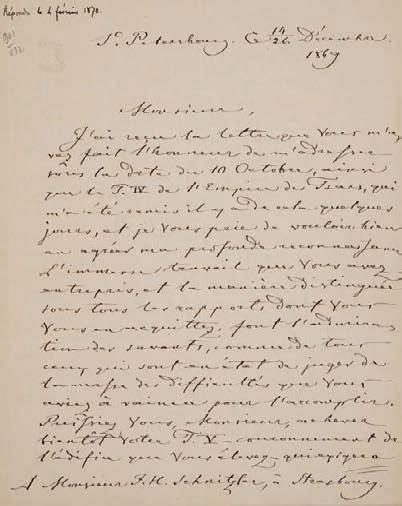 Répondu le 4 février 1870.
St. Petersbourg. Ce 14/26 Décembre
1869
Monsieur,
J'ai reçu la lettre que Vous m'a-
vez fait l'honneur de m'adresser
sous la date du 10 Octobre, ainsi
que le T. IV de l'Empire des Tsars, qui
m'a été remis il y a de cela quelques
jours, et je Vous prie de vouloir bien
en agréer ma profonde reconnaissance
L'immense travail que Vous avez
entrepris, et la manière distinguée
sous tous les rapports dont Vous
Vous en acquittez, font l'admira-
tion des savants, comme de tous
ceux qui sont en état de juger de
la masse des difficultés que Vous
aviez à vaincre pour l'accomplir.
Puissiez Vous, Monsieur, achever
bientôt Votre T. V couronnement de
l'édifice que Vous élevez, qui exigera
A Monsieur J. H. Schnitzler, à Strasbourg.